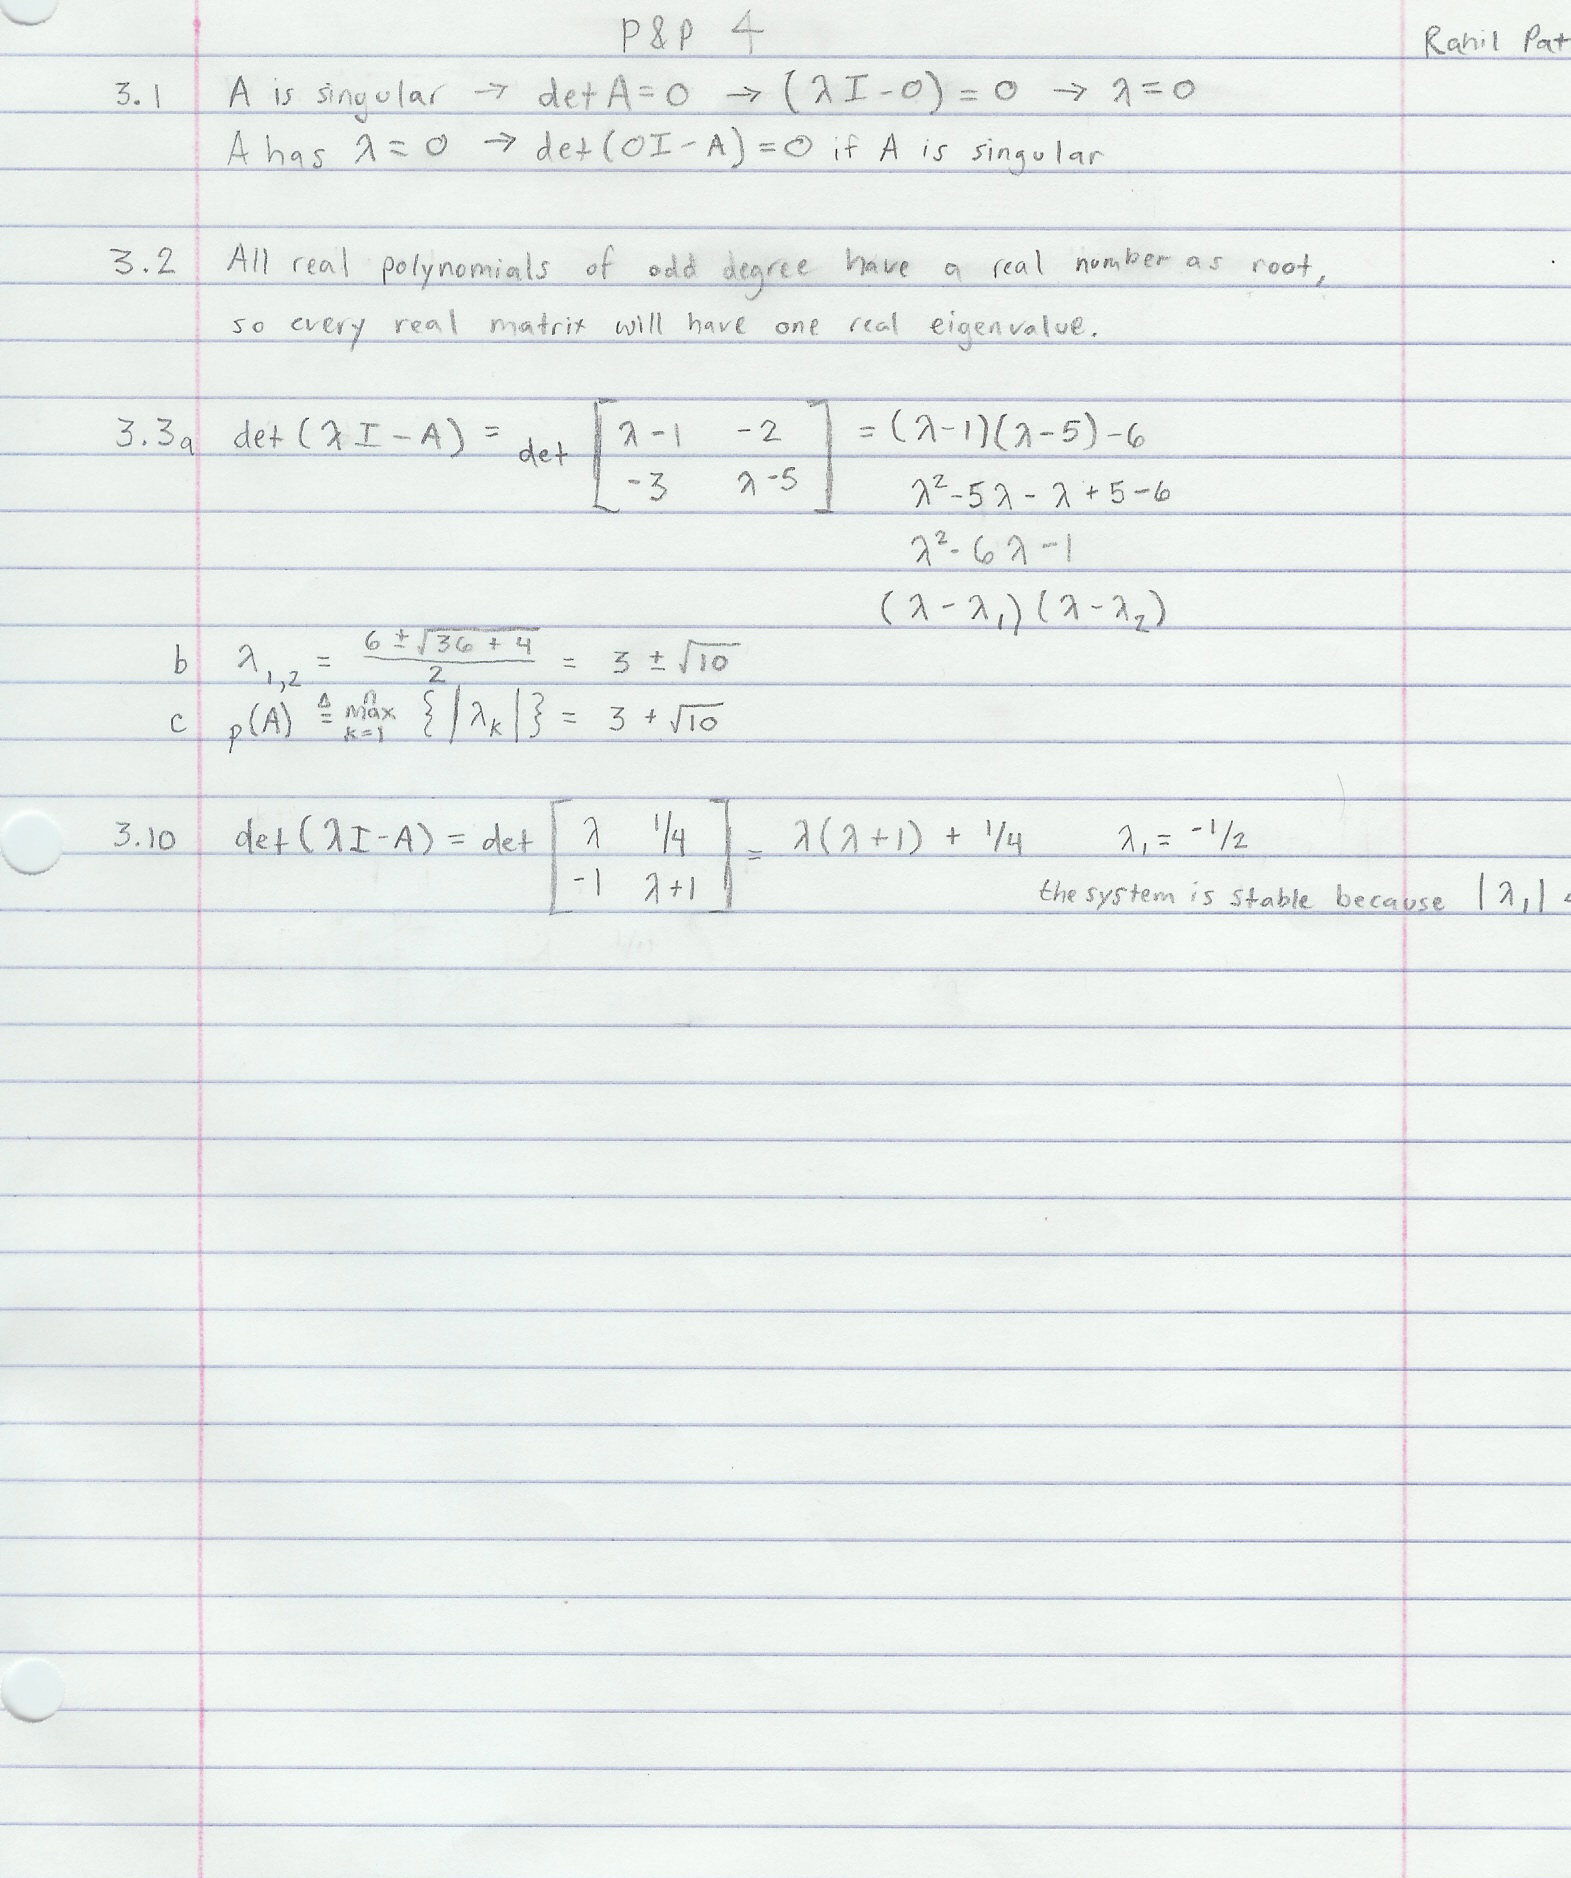 P&P 4
Rahil Pat
3.1 A is singular → det A = 0 → (λI - 0) = 0 → λ = 0
A has λ = 0 → det(0I - A) = 0 if A is singular
3.2 All real polynomials of odd degree have a real number as root,
so every real matrix will have one real eigenvalue.
3.3a det(λI - A) = det [ λ-1 -2 ; -3 λ-5 ] = (λ-1)(λ-5) - 6
λ² - 5λ - λ + 5 - 6
λ² - 6λ - 1
(λ - λ₁)(λ - λ₂)
b λ₁,₂ = (6 ± √(36 + 4))/2 = 3 ± √10
c ρ(A) ≜ max_{k=1}^{n} { |λₖ| } = 3 + √10
3.10 det(λI - A) = det [ λ 1/4 ; -1 λ+1 ] = λ(λ+1) + 1/4 λ₁ = -1/2
the system is stable because |λ₁| <